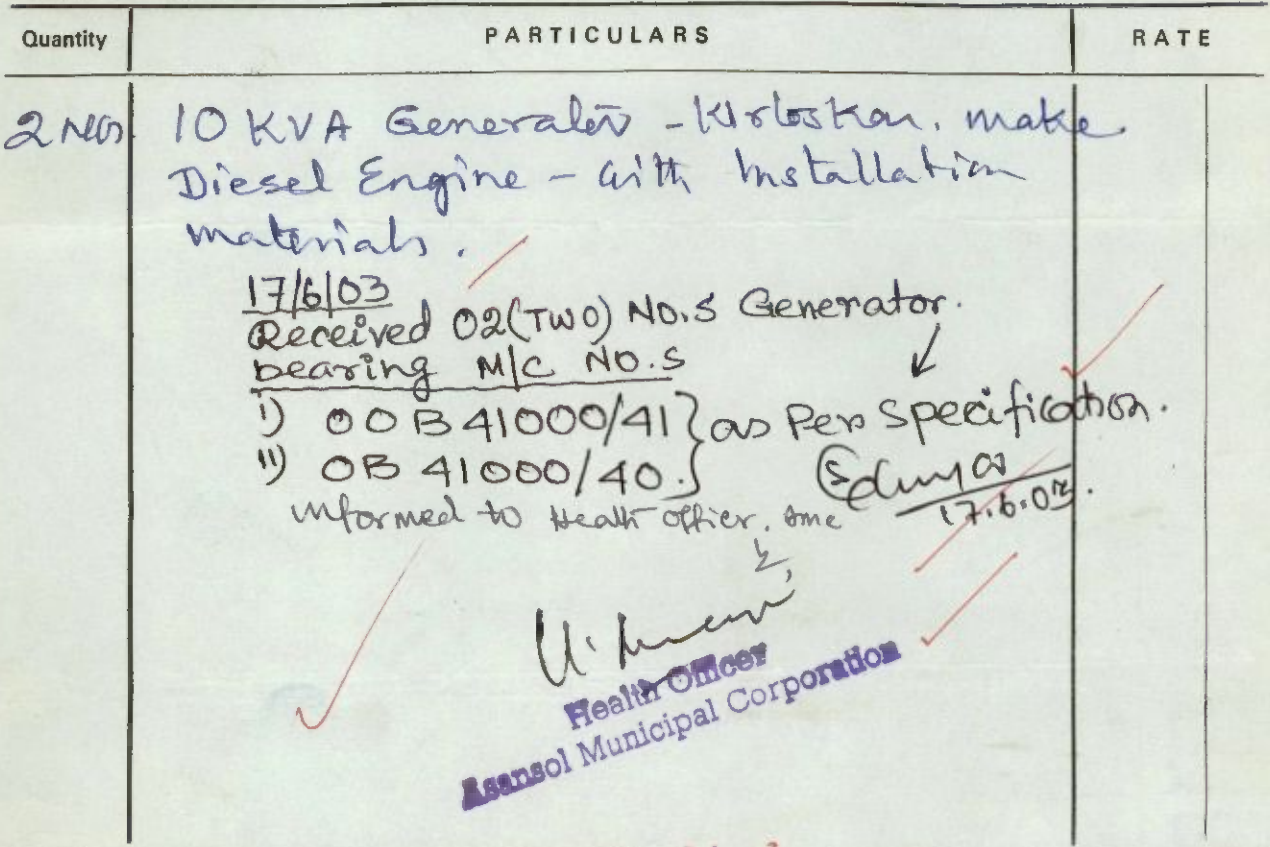 Quantity PARTICULARS RATE
2 Nos 10 KVA Generator - Kirloskar. make
Diesel Engine - with Installation
materials.
17/6/03
Received 02(TWO) NO.S Generator.
bearing M/C NO.S
i) 00B41000/41 } as Per Specification.
ii) 0B 41000/40.
17.6.03.
informed to Health officer, Amc
Health Officer
Asansol Municipal Corporation